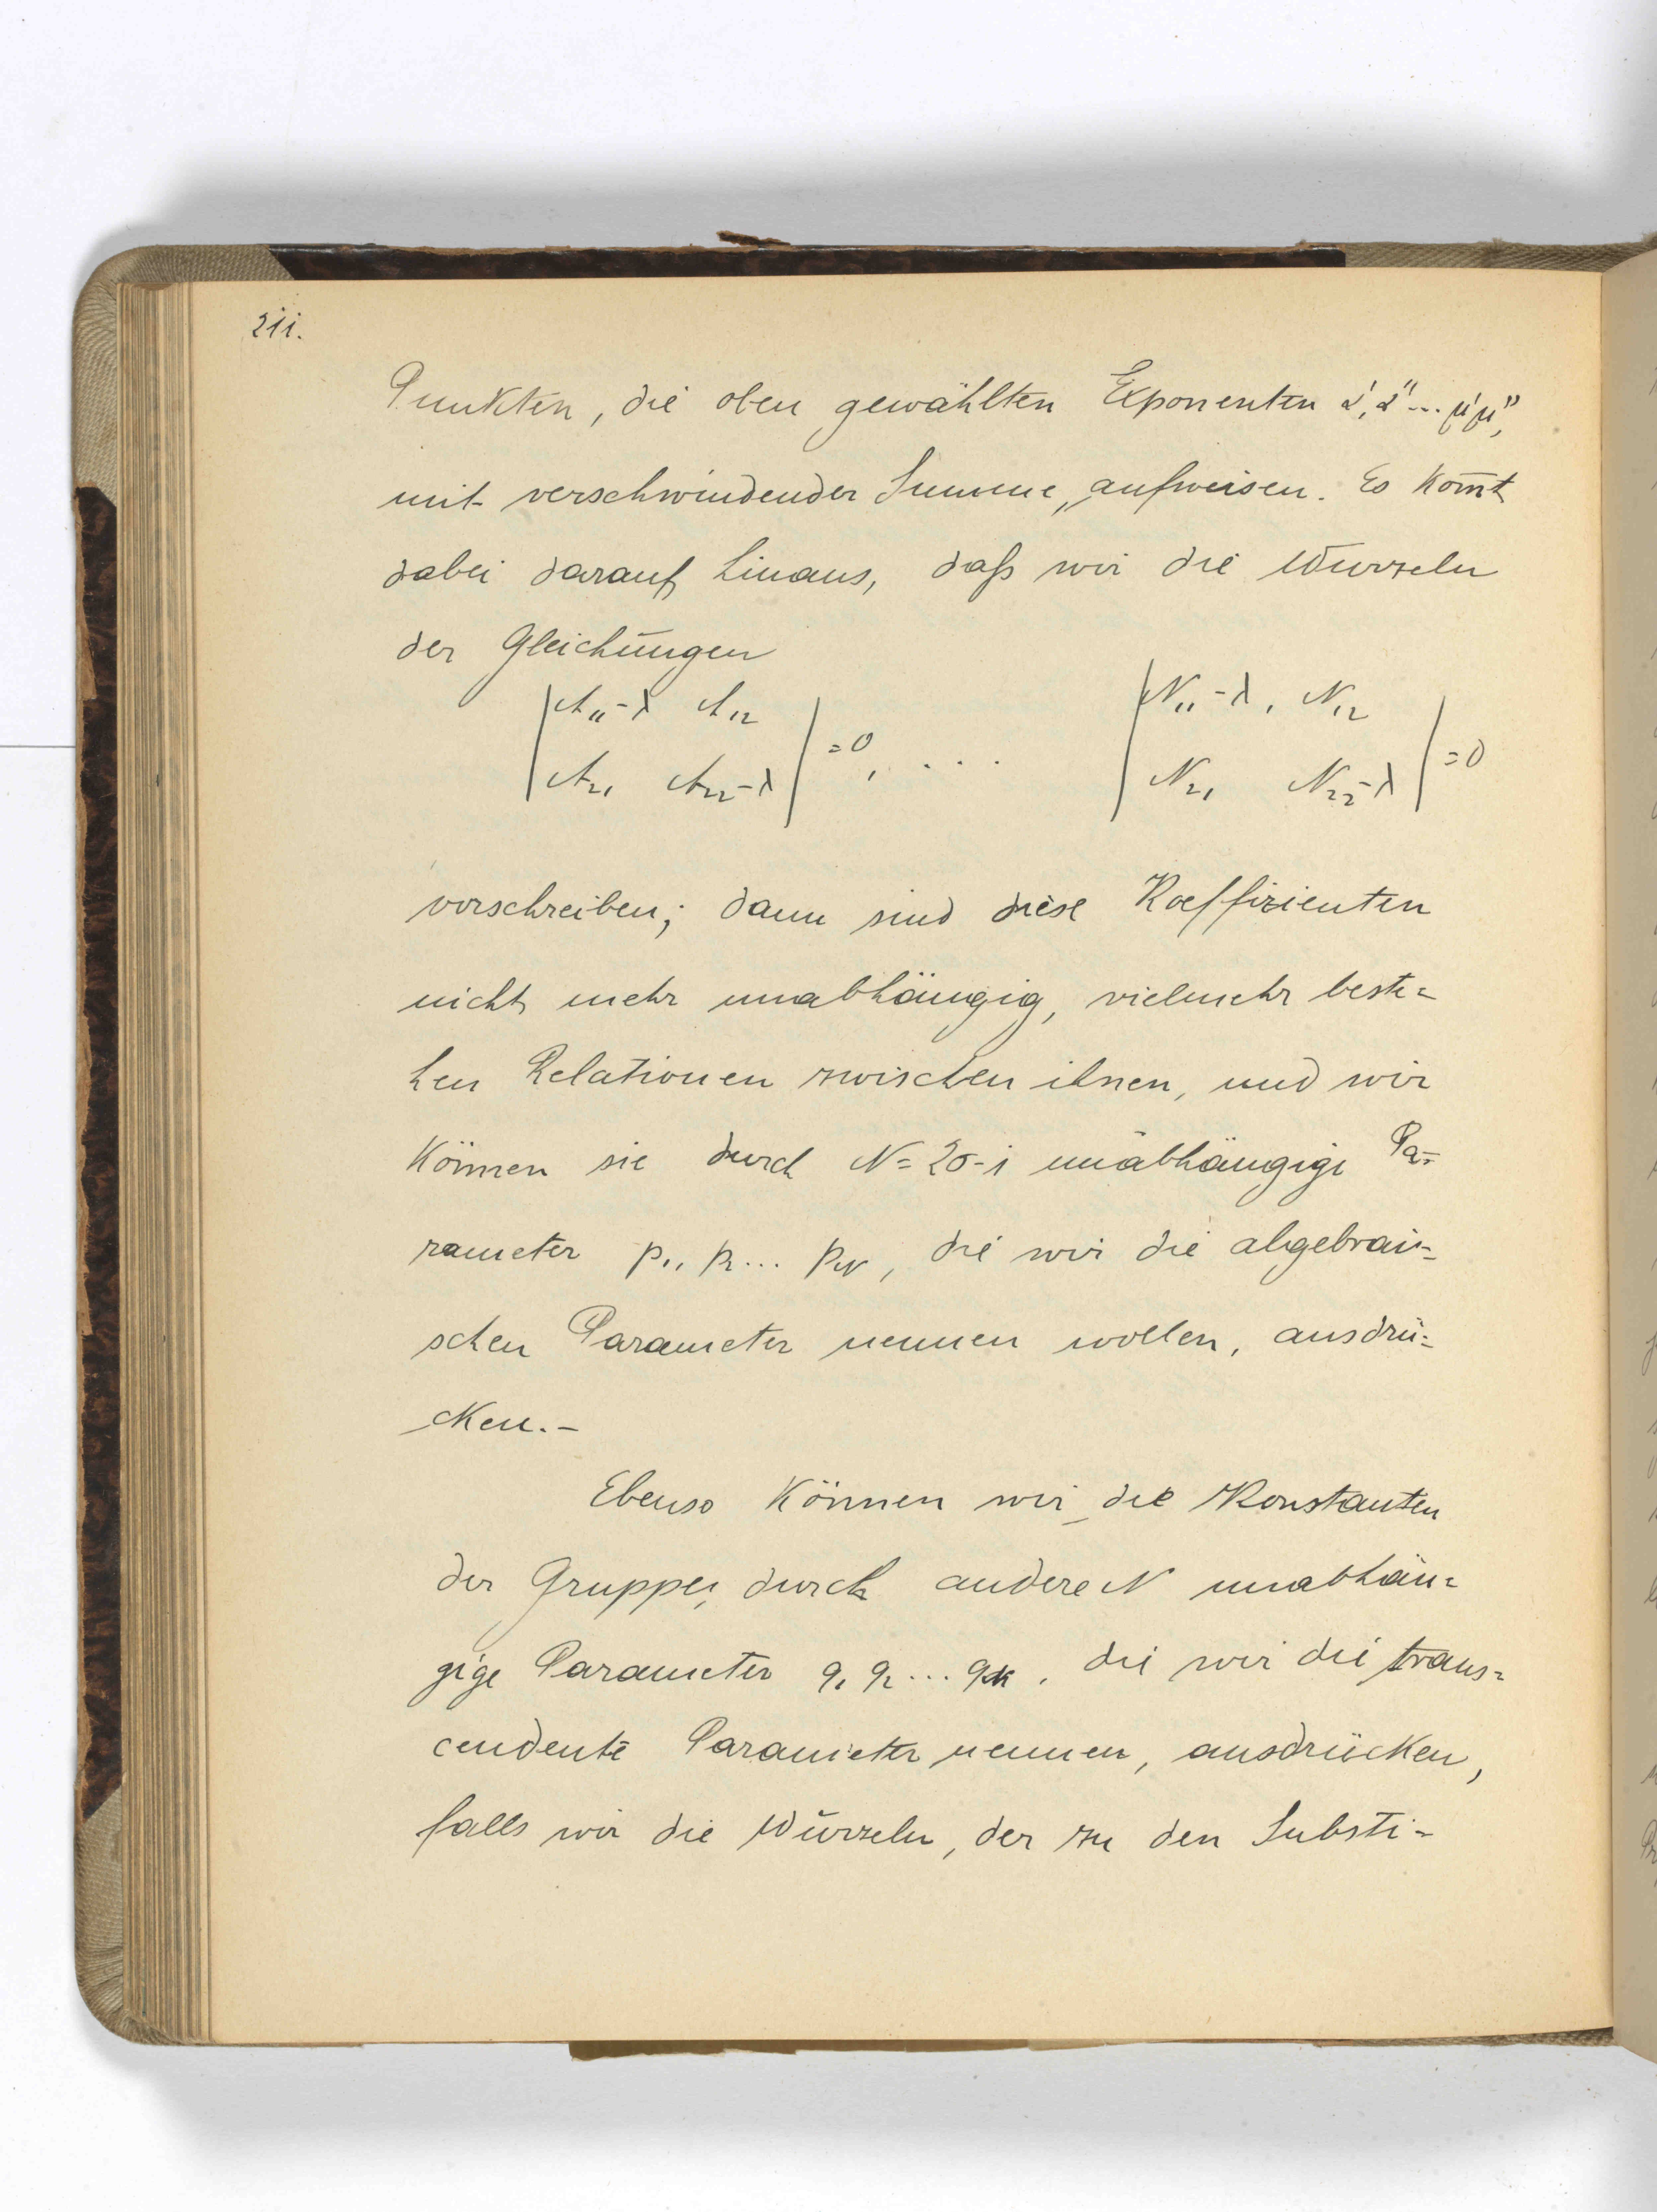 211.
Punkten, die oben gewählten Exponenten α', α'' ... μ' μ'',
mit verschwindender Summe, aufweisen. Es kom̄t
dabei darauf hinaus, daß wir die Wurzeln
der Gleichungen
|A₁₁-λ A₁₂| |N₁₁-λ, N₁₂|
|A₂₁ A₂₂-λ| =0, . . . |N₂₁ N₂₂-λ| =0
vorschreiben; dann sind diese Koeffizienten
nicht mehr unabhängig, vielmehr beste=
hen Relationen zwischen ihnen, und wir
können sie durch N=2σ-1 unabhängige Pa=
rameter p₁, p₂ ... p_N, die wir die algebrai=
schen Parameter nennen wollen, ausdrü=
cken.-
Ebenso können wir die Konstanten
der Gruppe, durch andere N unabhän=
gige Parameter q₁ q₂ ... q_N, die wir die trans=
cendente Parameter nennen, ausdrücken,
falls wir die Wurzeln, der zu den Substi=